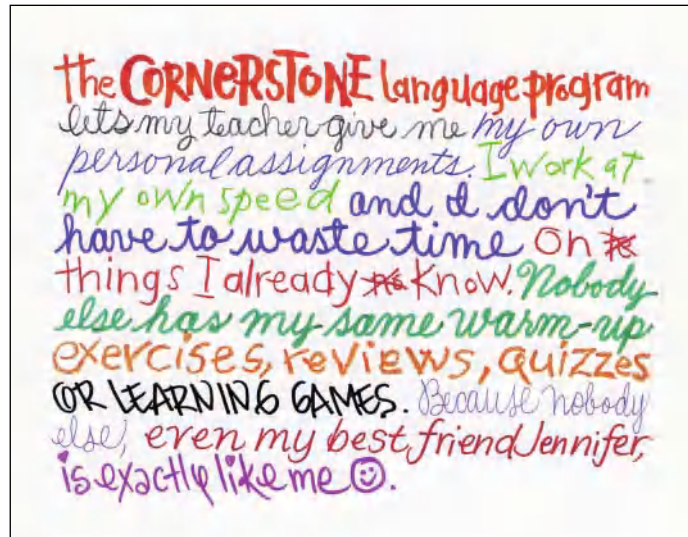 the CORNERSTONE language program
lets my teacher give me my own
personal assignments. I work at
my own speed and I don't
have to waste time on
things I already know. Nobody
else has my same warm-up
exercises, reviews, quizzes
OR LEARNING GAMES. Because nobody
else, even my best friend Jennifer,
is exactly like me ☺.